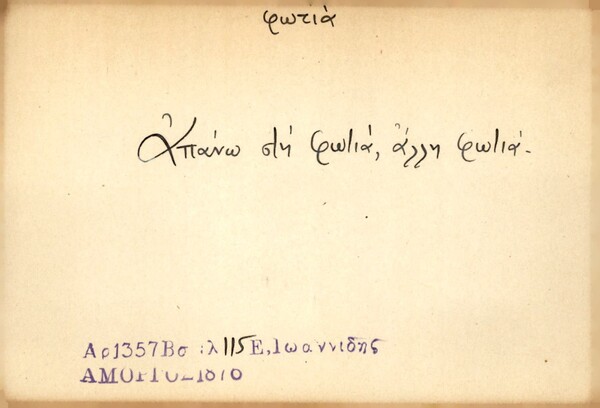 φωτιά
Ἀπάνω στή φωτιά, ἄλλη φωτιά.
Αρ1357Βσελ115Ε,Ιωαννιδης
ΑΜΟΡΓΟΣ1876